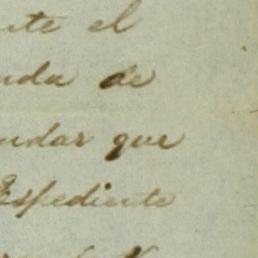 nte el
nda de
ndar que
Espediente